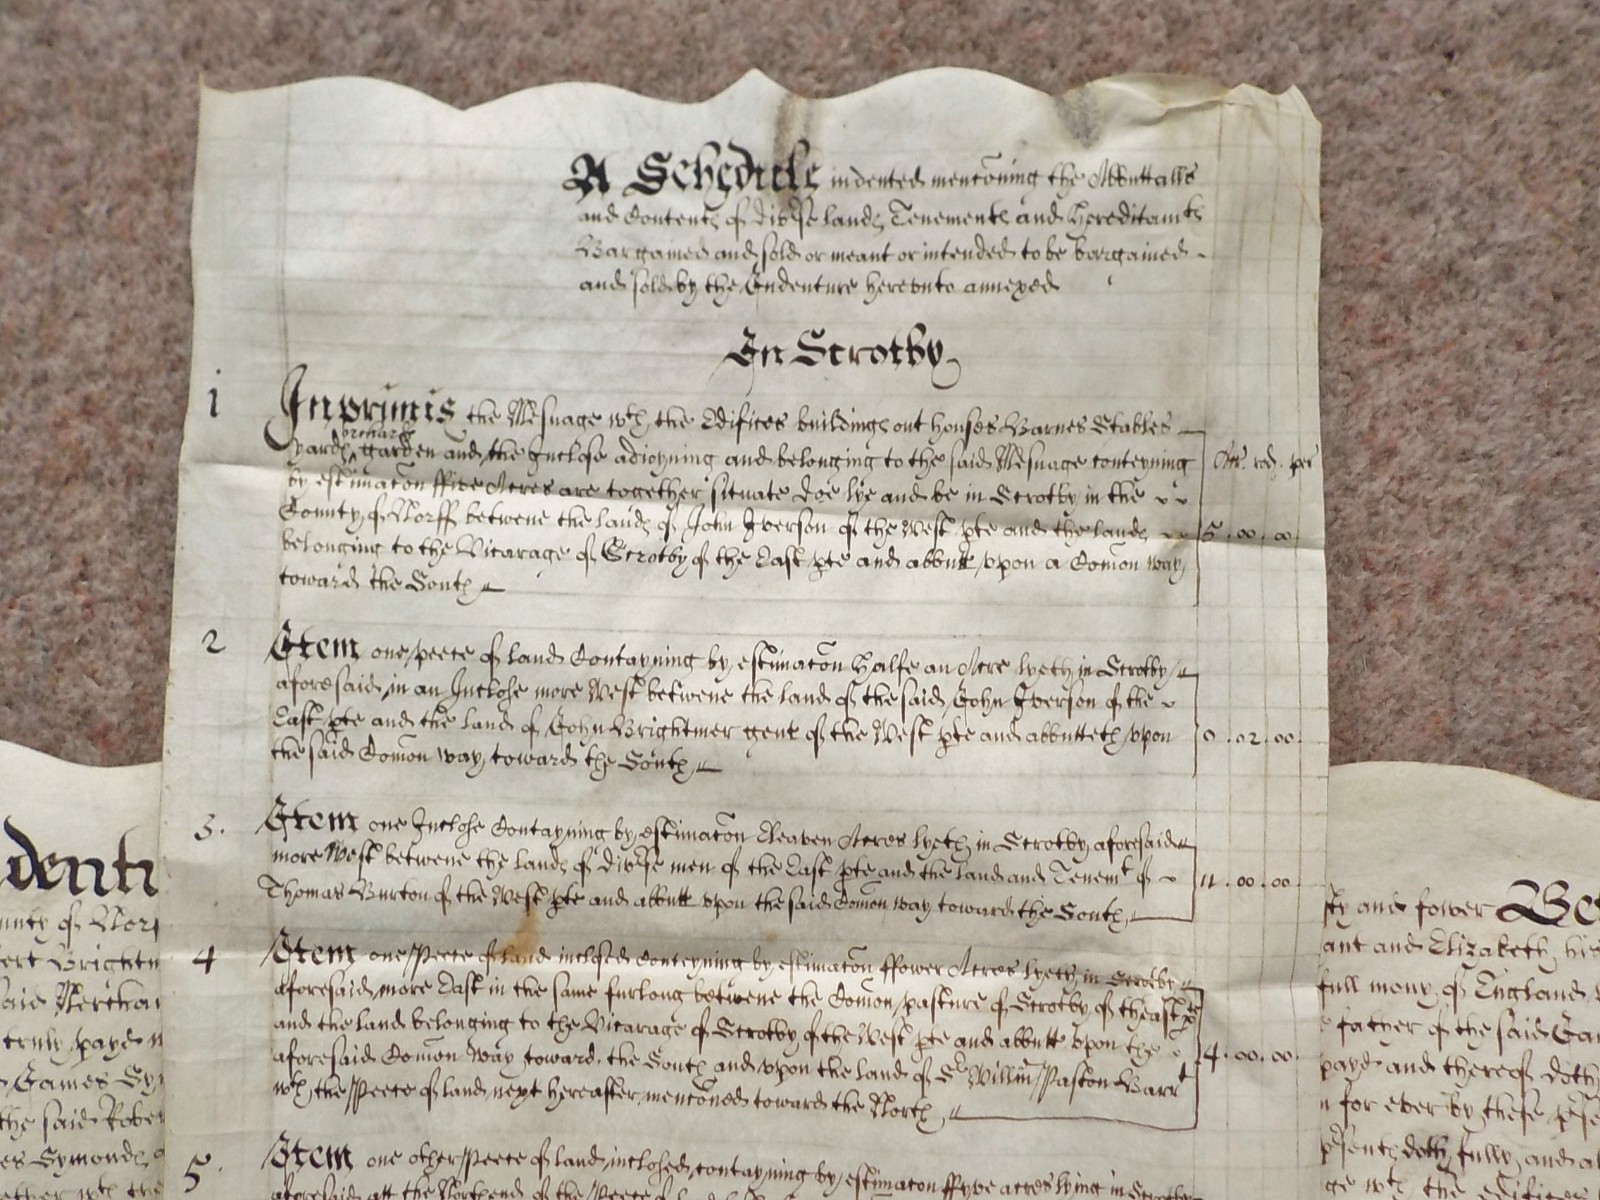 A Schedule indented mencōning the Abbuttalls
and Contents of divꝰse lands Tenements and hereditamts
Bargained and sold or meant or intended to be bargained
and sold by the Indenture herevnto annexed
In Scrotby
1 Inprimis the Mesuage wth the Edifices buildings out houses Barnes Stables
orchard
yards garden and the Inclose adioyning and belonging to the said Mesuage conteyning Acr. rod. per
by estimacōn ffive Acres are together situate doe lye and be in Scrotby in the
County of Norff betwene the lands of John Iverson of the West pte and the lands 5 . 00 . 00
belonging to the Vicarage of Scrotby of the East pte and abbutt vpon a Comon way
toward the South
2 Item one peece of land Contayning by estimacōn halfe an Acre lyeth in Scrotby
aforesaid in an Inclose more West betwene the land of the said John Iverson of the
East pte and the land of John Brightmer gent of the West pte and abbutteth vpon 0 . 02 . 00
the said Comōn way toward the South
3. Item one Inclose Contayning by estimacōn Eleaven Acres lyeth in Scrotby aforesaid
more West betwene the lands of divꝰse men of the East pte and the land and Tenemt of 11 . 00 . 00
Thomas Burton of the West pte and abbutt vpon the said Comōn way toward the South
4 Item one Peece of land inclosed Conteyning by estimacōn ffower Acres lyeth in Scrotby
aforesaid more East in the same furlong betwene the Comōn pasture of Scrotby of the east pte
and the land belonging to the Vicarage of Scrotby of the West pte and abbutt vpon the
aforesaid Comōn way toward the South and vpon the land of Sr Willm Paston Barrt 4 . 00 . 00
wth the Peece of land next hereafter mencōned toward the North
5 Item one other Peece of land inclosed contayning by estimacōn ffyve acres lying in Scrotby
aforesaid att the North end of the Peece of
denti
unty of Nor
ert Brightm
said Merchan
truly payd
James Sym
the said Rober
es Symonds
wth the
ty and fower
ant and Elizabeth his
full mony of England
father of the said
payd and thereof doth
n for ever by these
psents doth fully and
ge wth the